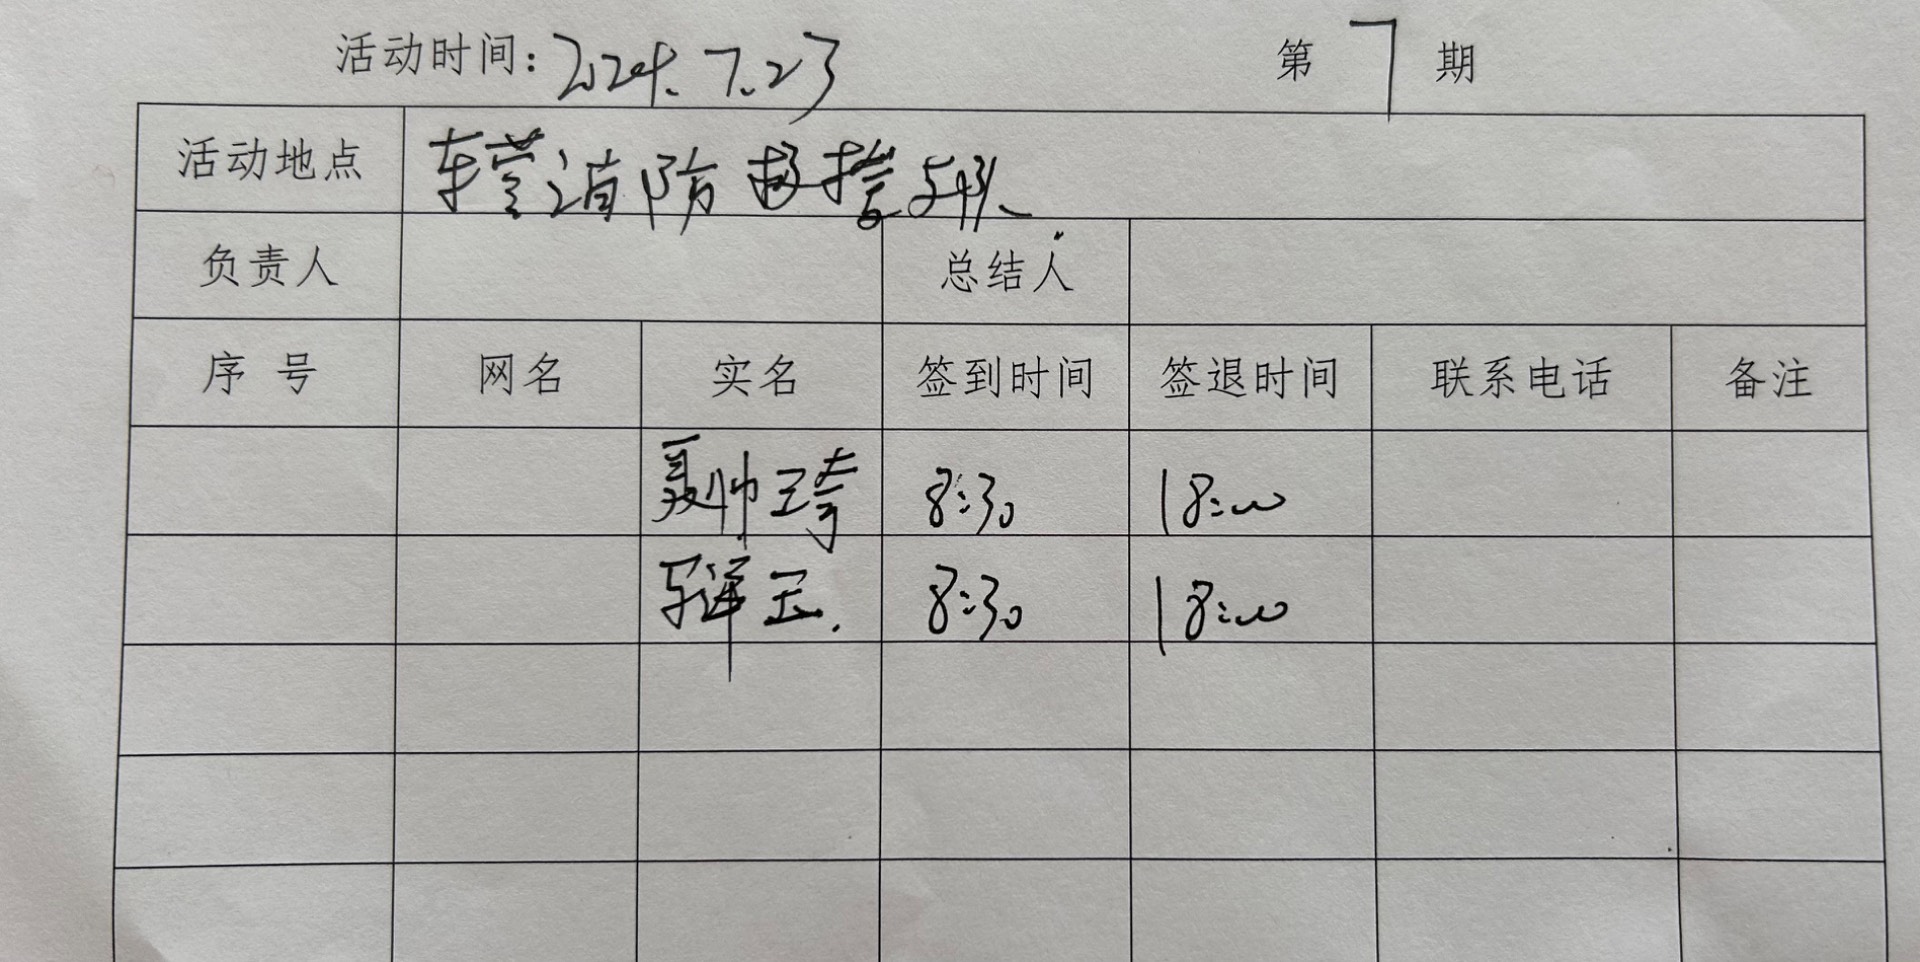 活动时间: 2024.7.23 第 7 期
活动地点 车营消防
负责人 总结人
序号 网名 实名 签到时间 签退时间 联系电话 备注
聂帅 8:30 18:00
8:30 18:00